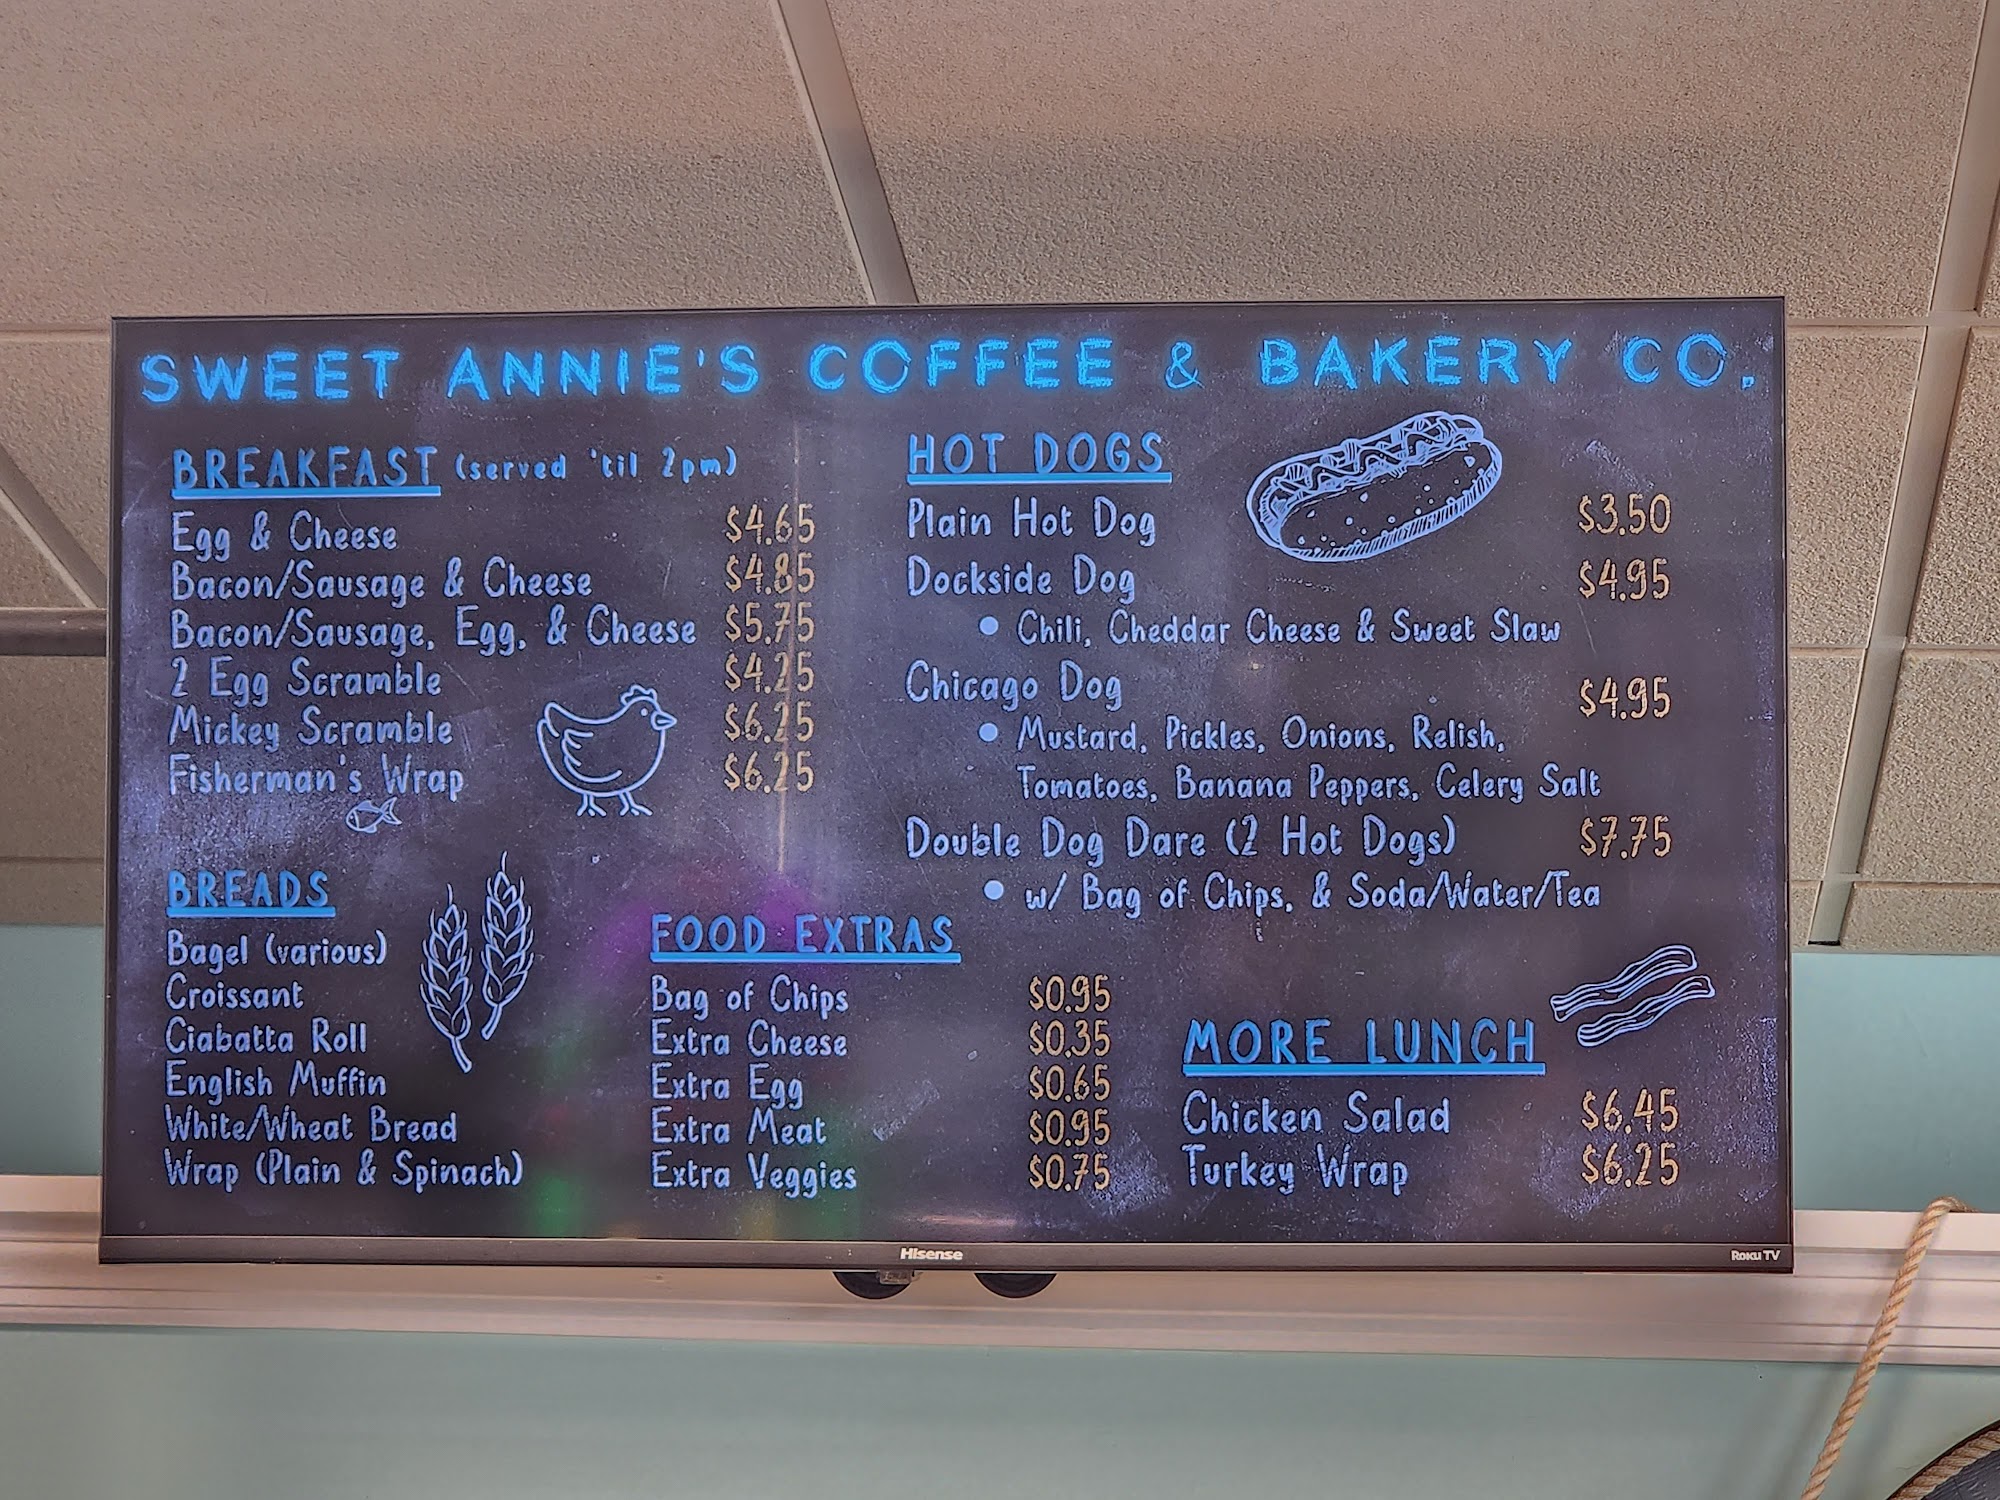 SWEET ANNIE'S COFFEE & BAKERY CO.
BREAKFAST (served 'til 2pm)
Egg & Cheese $4.65
Bacon/Sausage & Cheese $4.85
Bacon/Sausage, Egg, & Cheese $5.75
2 Egg Scramble $4.25
Mickey Scramble $6.25
Fisherman's Wrap $6.25
BREADS
Bagel (various)
Croissant
Ciabatta Roll
English Muffin
White/Wheat Bread
Wrap (Plain & Spinach)
HOT DOGS
Plain Hot Dog $3.50
Dockside Dog $4.95
• Chili, Cheddar Cheese & Sweet Slaw
Chicago Dog $4.95
• Mustard, Pickles, Onions, Relish,
Tomatoes, Banana Peppers, Celery Salt
Double Dog Dare (2 Hot Dogs) $7.75
• w/ Bag of Chips, & Soda/Water/Tea
FOOD EXTRAS
Bag of Chips $0.95
Extra Cheese $0.35
Extra Egg $0.65
Extra Meat $0.95
Extra Veggies $0.75
MORE LUNCH
Chicken Salad $6.45
Turkey Wrap $6.25
Hisense
Roku TV